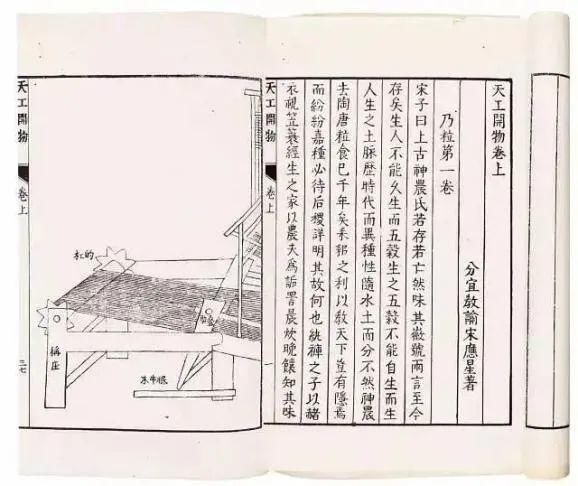 天工開物卷上
分宜敎諭宋應星著
乃粒第一卷
宋子曰上古神農氏若存若亡然味其徽號兩言至今
存矣生人不能久生而五穀生之五穀不能自生而生
人生之土脈歷時代而異種性隨水土而分不然神農
去陶唐粒食已千年矣耒耜之利以敎天下豈有隱焉
而紛紛嘉種必待后稷詳明其故何也紈褲之子以赭
衣視笠蓑經生之家以農夫爲詬詈晨炊晚饟知其味
天工開物
卷上
一
的杠
天工開物
卷上
二七